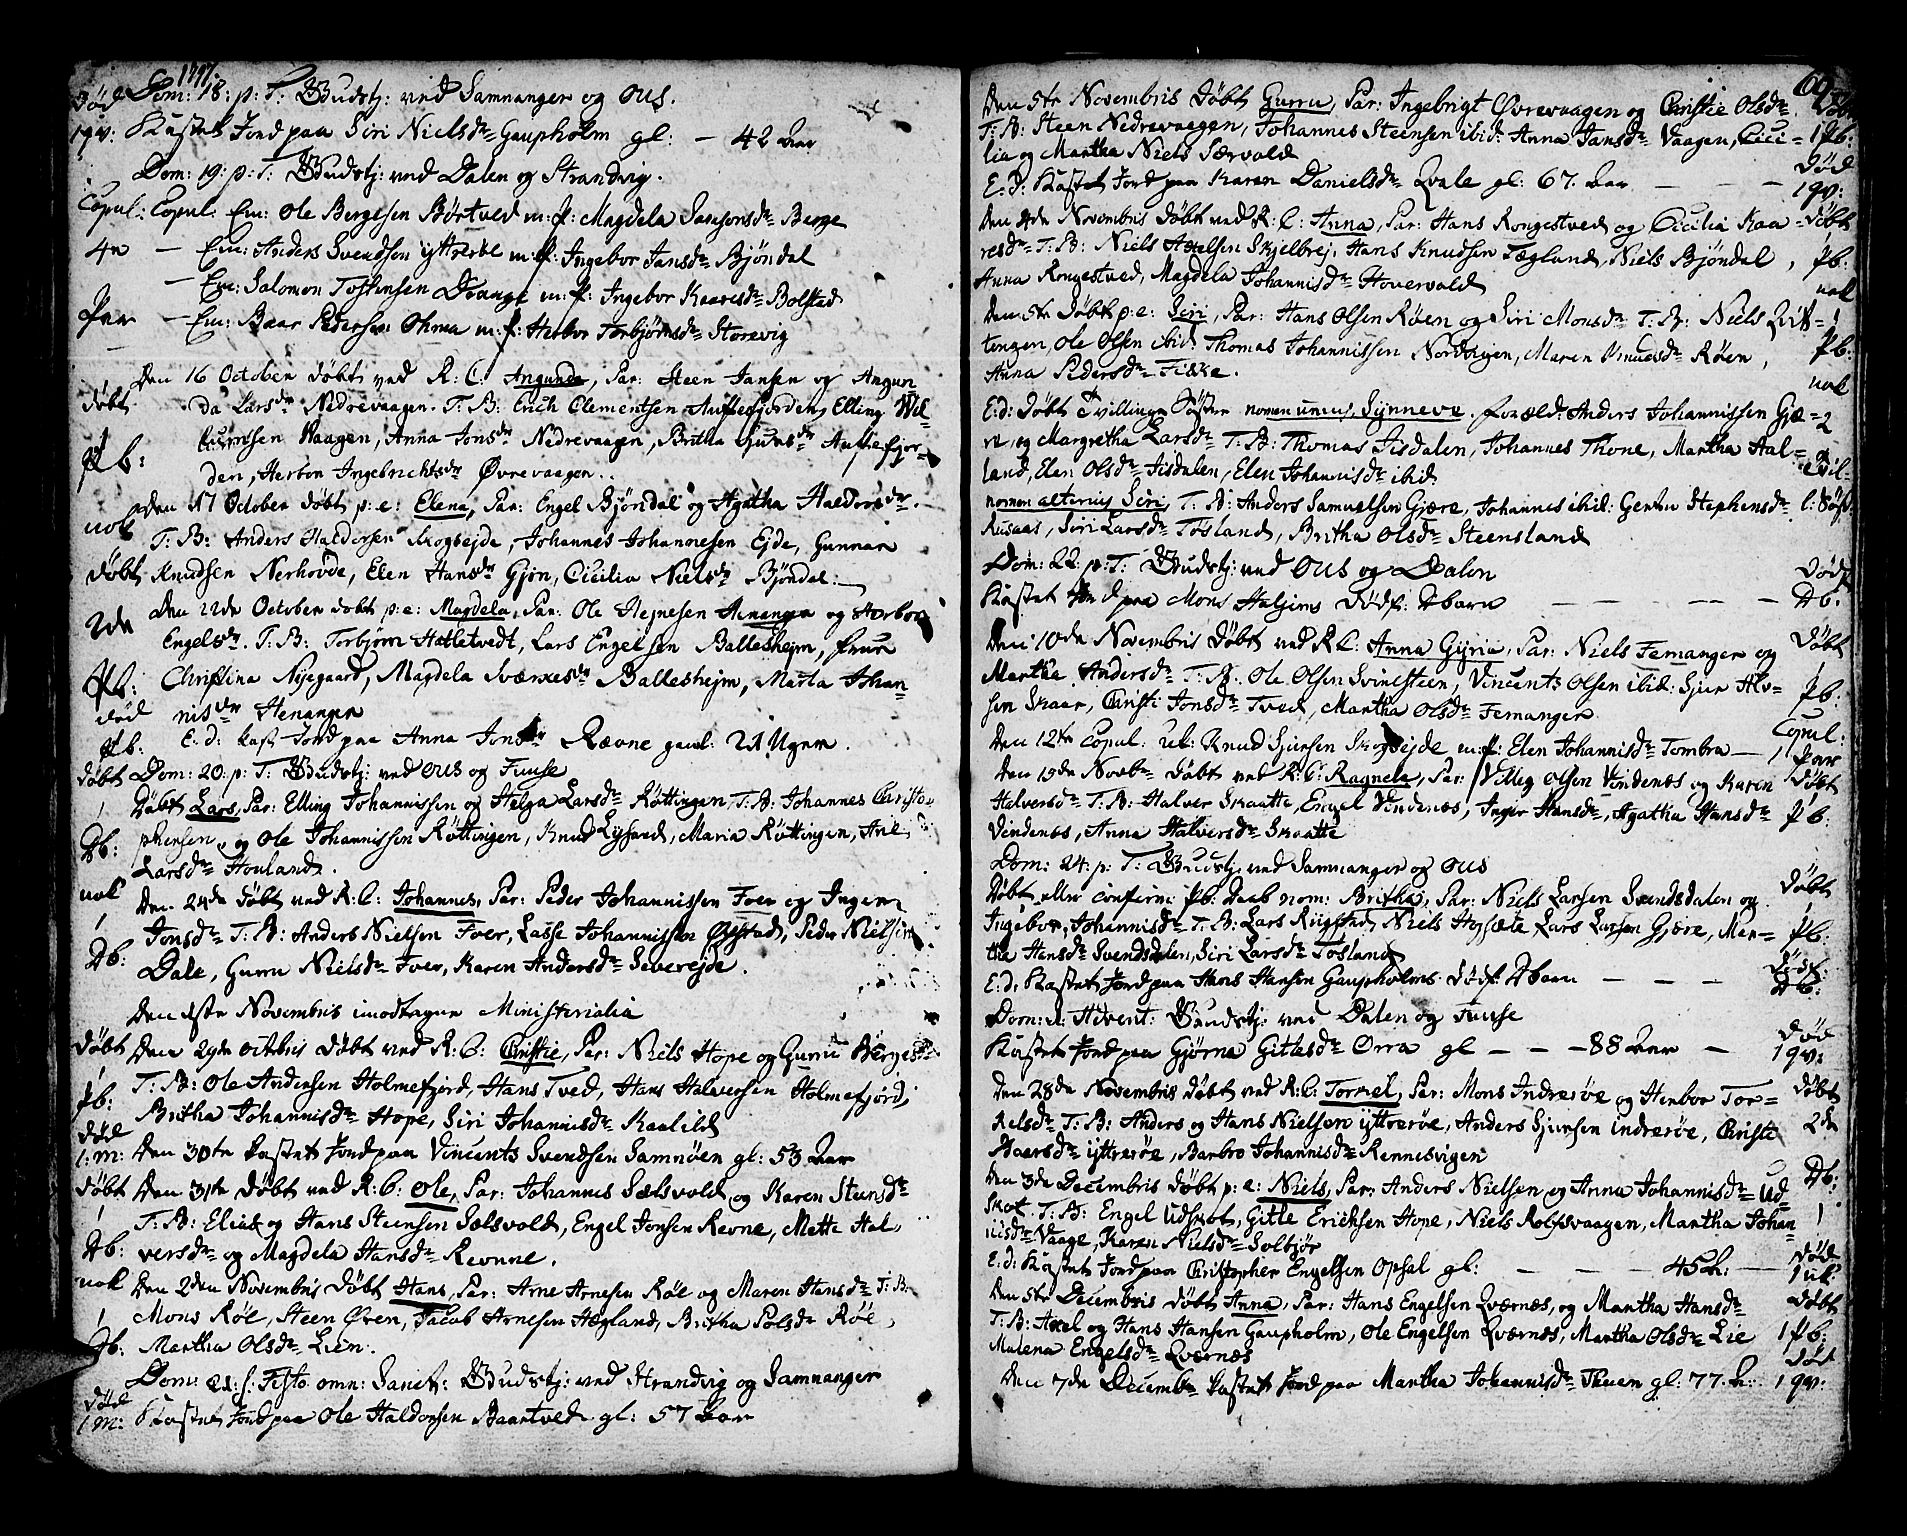 1797.
Død Dom: 18: p: T: Gudstj: ved Samnanger og Ous.
1 qv: Kastet Jord paa Siri Nielsdr Gaupholm gl: – 42 Aar
Dom: 19: p: T: Gudstj: ved Dalen og Strandvig.
Copul: Copul: Em: Ole Bergesen Børtved m: p: Magdela Samsonsdr Berge
4re – Em: Anders Svendsen yttrerøe m: p: Ingebor Jansdr Bjøndal
– Em: Salomon Tostensen Drange m: p: Ingebor Kaaresdr Bolstad
Par – Em: Baar Pedersen Ohma m: p: Herbor Torbjørnsdr Storevig
Den 16 October døbt ved R: C: Angunda, Par: Steen Jansen og Angun-
døbt da Larsdr Nedrevaagen. T: B: Erich Clementsen Auftefjorden, Elling Wil-
lumsen Vaagen, Anna Jonsdr Nedrevaagen, Britha Guttsdr Auftefjor-
Pb: den, Herbor Ingebrichtsdr Øvrevaagen.
nok Den 17 October døbt p: e: Elena, Par: Engel Bjøndal og Agatha Haldorsdr.
T: B: Anders Haldorsen Skogsejde, Johannes Johannesen Ejde, Gunnar
døbt Knudsen Nerhovde, Elen Hansdr Gjøn, Cicilia Nielsdr Bjøndal.
2de Den 22de October døbt p: e: Magdela, Par: Ole Hejnesen Henanger og Herbor
Engelsdr. T: B: Torbjørn Hatletvedt, Lars Engelsen Ballesheim, frue
Pb: Christina Nijegaard, Magdela Sværkesdr Ballesheim, Marta Johan-
død nisdr Henanger
Pb: E: d: kast Jord paa Anna Jonsdr Røvne gaml: 21 Uger.
døbt Dom: 20: p: T: Gudstj: ved Ous og Fuuse
1 Døbt Lars, Par: Elling Johannissen og Helga Larsdr Røttingen, T: B: Johannes Christo-
Db: phersen, og Ole Johannissen Røttingen, Knud Lyssand, Maria Røttingen, Ane
Larsdr Houland.
nok Den 24de døbt ved R: C: Johannes, Par: Peder Johannissen Foer og Inger
1 Jonsdr T: B: Anders Nielsen Foer, Lasse Johannissen Opstad, Peder Nielsen
Db: Dale, Gurru Nielsdr Foer, Karen Andersdr Severejde.
Den 1ste Novembris imodtagne Ministerialia
døbt Den 29de octbris døbt ved R: C: Christie, Par: Niels Hope og Gurru Børges dr
Pb: T: B: Ole Andersen Holmefjord, Hans Tved, Hans Halversen Holmefjord,
Britha Johannisdr Hope, Siri Johannisdr Kaalild
død
1: m: Den 30te kastet Jord paa Vincents Svendsen Samnøen gl: 53 Aar
døbt Den 31te døbt ved R: C: Ole, Par: Johannes Sælsvold og Karen Steensdr
1 T: B: Elias og Hans Steensen Sælsvold, Engel Jonsen Revne, Mette Hal-
Db: versdr og Magdela Hansdr Revne.
nok Den 2den Novembris døbt Hans, Par: Arne Arnesen Røe og Maren Hansdr T: B:
1 Mons Røe, Steen Øren, Jacob Arnesen Hægland, Britha Polsdr Røe,
Db: Martha Olsdr Lien.
Dom: 21: s: Festo omn: Sanct: Gudstj: ved Strandvig og Samnanger
død
1 m: Kastet Jord paa Ole Haldorsen Baartved gl: 57 Aar
69
Den 5te Novembris døbt Gurru, Par: Ingebrigt Øvrevaagen og Christie Olsdr døbt
T: B: Steen Nedrevaagen, Johannes Steensen ibid: Anna Jansdr Vaagen, Cici- 1 Pb:
lia og Martha Niels Særvold
E: d: Kastet Jord paa Karen Danielsdr Qvale gl: 67. Aar – – – død 1 qv:
Den 4de Novembris døbt ved R: C: Anna, Par: Hans Rongestved og Cicilia Kaa- døbt
resdr T: B: Niels Axelsen Skjelbrej, Hans Knudsen Tegland, Niels Bjøndal, Pb:
Anna Rongestved, Magdela Johannisdr Hovervold
nok
Den 5te døbt p: e: Siri, Par: Hans Olsen Røen og Siri Monsdr T: B: Niels Qvit- 1
tengen, Ole Olsen ibid Thomas Johannissen Nordvigen, Maren Knudsdr Røen, Pb:
Anna Pedersdr Fikke.
nok
E: d: døbt Tvillinge Søstre nomen unius, Synneve. foræld: Anders Johannissen Gjæ- 2
re, og Margretha Larsdr T: B: Thomas Tisdalen, Johannes Thone, Martha Hal-
land, Elen Olsdr Tisdalen, Elen Johannisdr ibid. Tvil-
nomen alterius Siri, T: B: Anders Samuelsen Gjære, Johannes ibid: Gertru Stephensdr l: Søst.
Rusaas, Siri Larsdr Tøsland, Britha Olsdr Steensland
Dom: 22: p: T: Gudstj: ved Ous og Dalen
død
Kastet Jord paa Mons Haljems dødf: Dbarn – – – Db:
Den 10de Novembris døbt ved R: C: Anna Gyria, Par: Niels Femanger og døbt
Martha Andersdr T: B: Ole Olsen Svinesteen, Vincents Olsen ibid: Sjur Hlv- 1
sen Skaar, Christi Jonsdr Tved, Martha Olsdr Femanger. Pb:
Den 12te copul: uk: Knud Sjursen Skogsejde m: p: Elen Johannisdr Tombra – Copul: 1 Par
Den 19de Novbr døbt ved R: C: Ragnela, Par: Villig Olsen Vindenæs og Karen døbt
Halversdr T: B: Halver Skaatte, Engel Vindenæs, Inger Hansdr, Agatha Hansdr Pb:
Vindenæs, Anna Halversdr Skaatte
Dom: 24: p: T: Gudstj: ved Samnanger og Ous
Døbt eller confirm: Pb: Daab nom: Britha, Par: Niels Larsen Svendsdalen og døbt
Ingebor Johannisdr T: B: Lars Rugstad, Niels Hopsæte, Lars Larsen Gjære, Mar- 1 Pb:
tha Hansdr Svendsdalen, Siri Larsdr Tøsland
E: d: Kastet Jord paa Hans Hansen Gaupholms dødf: Dbarn – – – dødf: Db:
Dom: 1: Advent: Gudstj: ved Dalen og Fuuse
Kastet Jord paa Gjørna Gitlesdr Orra gl – – – 88 Aar – død 1 qv:
Den 28de Novembris døbt ved R: C: Torkel, Par: Mons Indrerøe og Herbor Tor- døbt
kelsdr T: B: Anders og Hans Nielsen yttrerøe, Anders Sjursen indrerøe, Christe 2de
Baarsdr yttrerøe, Barbro Johannisdr Rennesvigen
Den 3de Decembris døbt p: e: Niels, Par: Anders Nielsen og Anna Johannisdr Ud- Db:
skot. T: B: Engel Udskot, Gitle Ericksen Hope, Niels Rolfsvaagen, Martha Johan- 1
nisdr Vaage, Karen Nielsdr Solbjør
E: d: Kastet Jord paa Christopher Engelsen Opsal gl: – – – 45 A: – død 1 uk:
Den 5te Decembris døbt Anna, Par: Hans Engelsen Qværnæs, og Martha Hansdr døbt
T: B: Axel og Hans Hansen Gaupholm, Ole Engelsen Qværnæs, Martha Olsdr Lie 1 Pb:
Malena Engelsdr Qværnæs
Den 7de Decembr kastet Jord paa Martha Johannisdr Thuen gl: 77 A: død 1 qv: